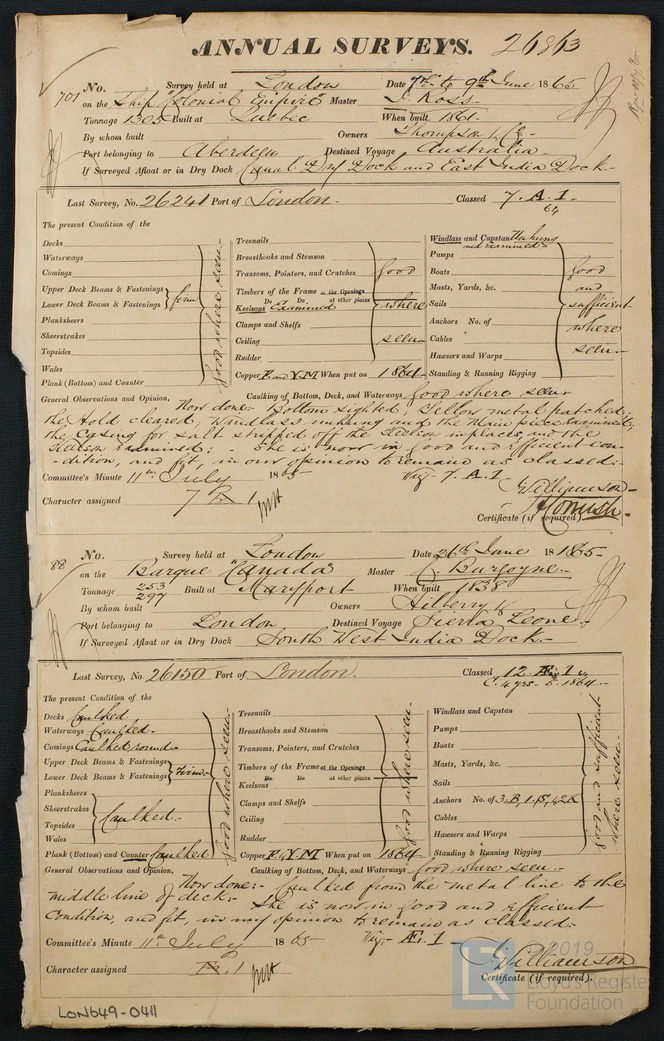 ANNUAL SURVEYS. 26863
701 No. Survey held at London Date 7th to 9th June 1865
on the Ship "Colonial Empire" Master J. Ross.
Tonnage 1305 Built at Quebec When built 1861
By whom built Owners Thompson & Co.
Port belonging to Aberdeen Destined Voyage Australia.
If Surveyed Afloat or in Dry Dock Canal Dry Dock and East India Dock.
Last Survey, No. 26241 Port of London. Classed 7. A.1.
64
The present Condition of the
Decks
Waterways
Comings
Upper Deck Beams & Fastenings
Lower Deck Beams & Fastenings firm
Planksheers
Sheerstrakes
Topsides
Wales
Plank (Bottom) and Counter
good where seen
Treenails
Breasthooks and Stemson
Transoms, Pointers, and Crutches good
Timbers of the Frame at the Openings
Do Do at other places where
Keelsons Examined
Clamps and Shelfs
Ceiling seen.
Rudder
Copper F. and Y.M When put on 1864
Windlass and Capstan Unhung and examined
Pumps
Boats good
Masts, Yards, &c. and
Sails sufficient
Anchors No. of where
Cables seen.
Hawsers and Warps
Standing & Running Rigging
General Observations and Opinion, Caulking of Bottom, Deck, and Waterways good where seen
Now done:- Bottom sighted, Yellow metal patched:
the Hold cleared, Windlass unhung and the Main piece examined;
the Casing for salt stripped off the Keelson in places, and the
Keelson examined; - She is now in good and efficient con-
-dition, and fit, in our opinion to remain as classed:
Committee's Minute 11th July 1865 Viz. 7. A.1
Character assigned 7 A 1
J. Williamson
H Cornish.
Certificate (if required)
88 No. Survey held at London Date 26th June 1865
on the Barque "Canada" Master C. Burgoyne.
Tonnage 253 297 Built at Maryport When built 1838
By whom built Owners Hilberry
Port belonging to London Destined Voyage Sierra Leone.
If Surveyed Afloat or in Dry Dock South West India Dock.
Last Survey, No. 26150 Port of London. Classed 12. Æ.1 64
C. 4 yrs. 1864.
The present Condition of the
Decks Caulked
Waterways Caulked.
Comings Caulked round.
Upper Deck Beams & Fastenings
Lower Deck Beams & Fastenings Firm.
Planksheers
Sheerstrakes Caulked.
Topsides
Wales
Plank (Bottom) and Counter Caulked
good where seen
Treenails
Breasthooks and Stemson
Transoms, Pointers, and Crutches
Timbers of the Frame at the Openings
Do Do at other places
Keelsons
Clamps and Shelfs
Ceiling
Rudder
good where seen
Copper F. & Y.M When put on 1864
Windlass and Capstan
Pumps
Boats
Masts, Yards, &c.
Sails
Anchors No. of 3 B, 1 S, & 2 K
Cables
Hawsers and Warps
Standing & Running Rigging
good and sufficient where seen.
General Observations and Opinion, Caulking of Bottom, Deck, and Waterways good where seen.
Now done:- Caulked from the metal line to the
middle line of deck:- She is now in good and efficient
Condition, and fit, in my opinion to remain as classed:
Committee's Minute 11th July 1865 Viz:- Æ.1
Character assigned Æ. 1
J. Williamson
Certificate (if required).
LON649-0411
© 2019
LR Lloyd's Register
Foundation